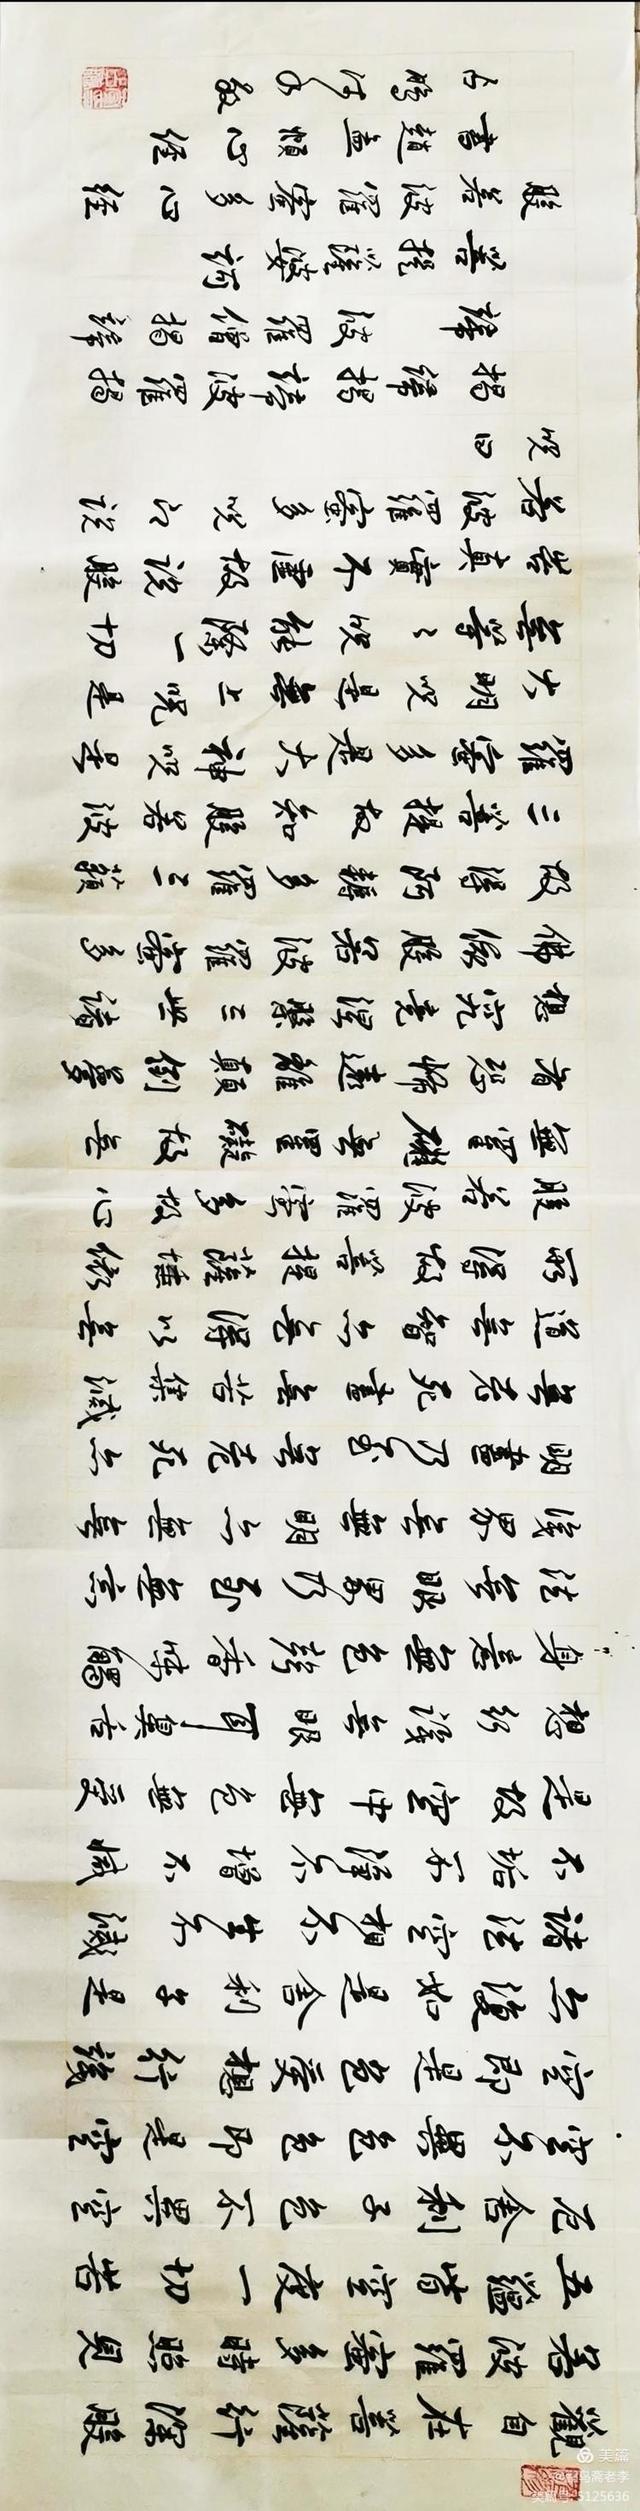 觀自在菩薩行深般
若波羅蜜多時照見
五蘊皆空度一切苦
厄舍利子色不異空
空不異色色即是空
空即是色受想行識
亦復如是舍利子是
諸法空相不生不滅
不垢不淨不增不減
是故空中無色無受
想行識無眼耳鼻舌
身意無色聲香味觸
法無眼界乃至無意
識界無無明亦無無
明盡乃至無老死亦
無老死盡無苦集滅
道無智亦無得以無
所得故菩提薩埵依
般若波羅蜜多故心
無罣礙無罣礙故無
有恐怖遠離顛倒夢
想究竟涅槃三世諸
佛依般若波羅蜜多
故得阿耨多羅三藐
三菩提故知般若波
羅蜜多是大神咒是
大明咒是無上咒是
無等々咒能除一切
苦真實不虛故說般
若波羅蜜多咒即說
咒曰
揭諦揭諦波羅揭
諦 波羅僧揭諦
菩提薩婆訶
般若波羅蜜多心經
書趙孟頫心經
美篇
鸟斋老李
美篇号:5125636